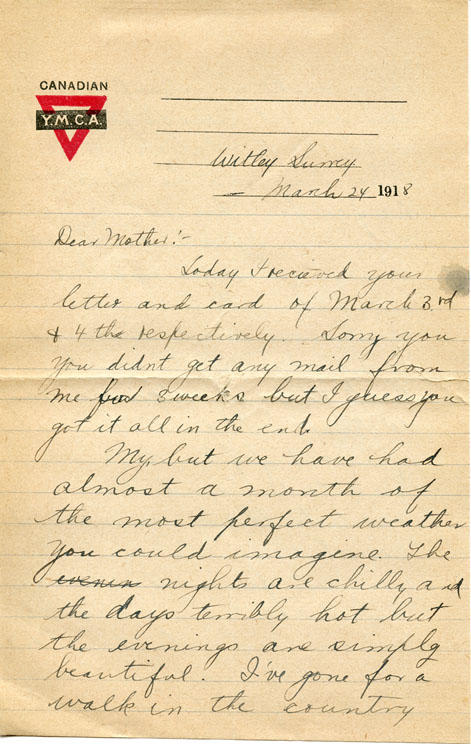 CANADIAN
Y.M.C.A.
Witley Surrey
March 24 1918
Dear Mother:-
Today I recieved your
letter and card of March 3rd
& 4th respectively. Sorry you
you didnt get any mail from
me for 3 weeks but I guess you
got it all in the end.
My, but we have had
almost a month of
the most perfect weather
you could imagine. The
evenin nights are chilly and
the days terribly hot but
the evenings are simply
beautiful. I've gone for a
walk in the country